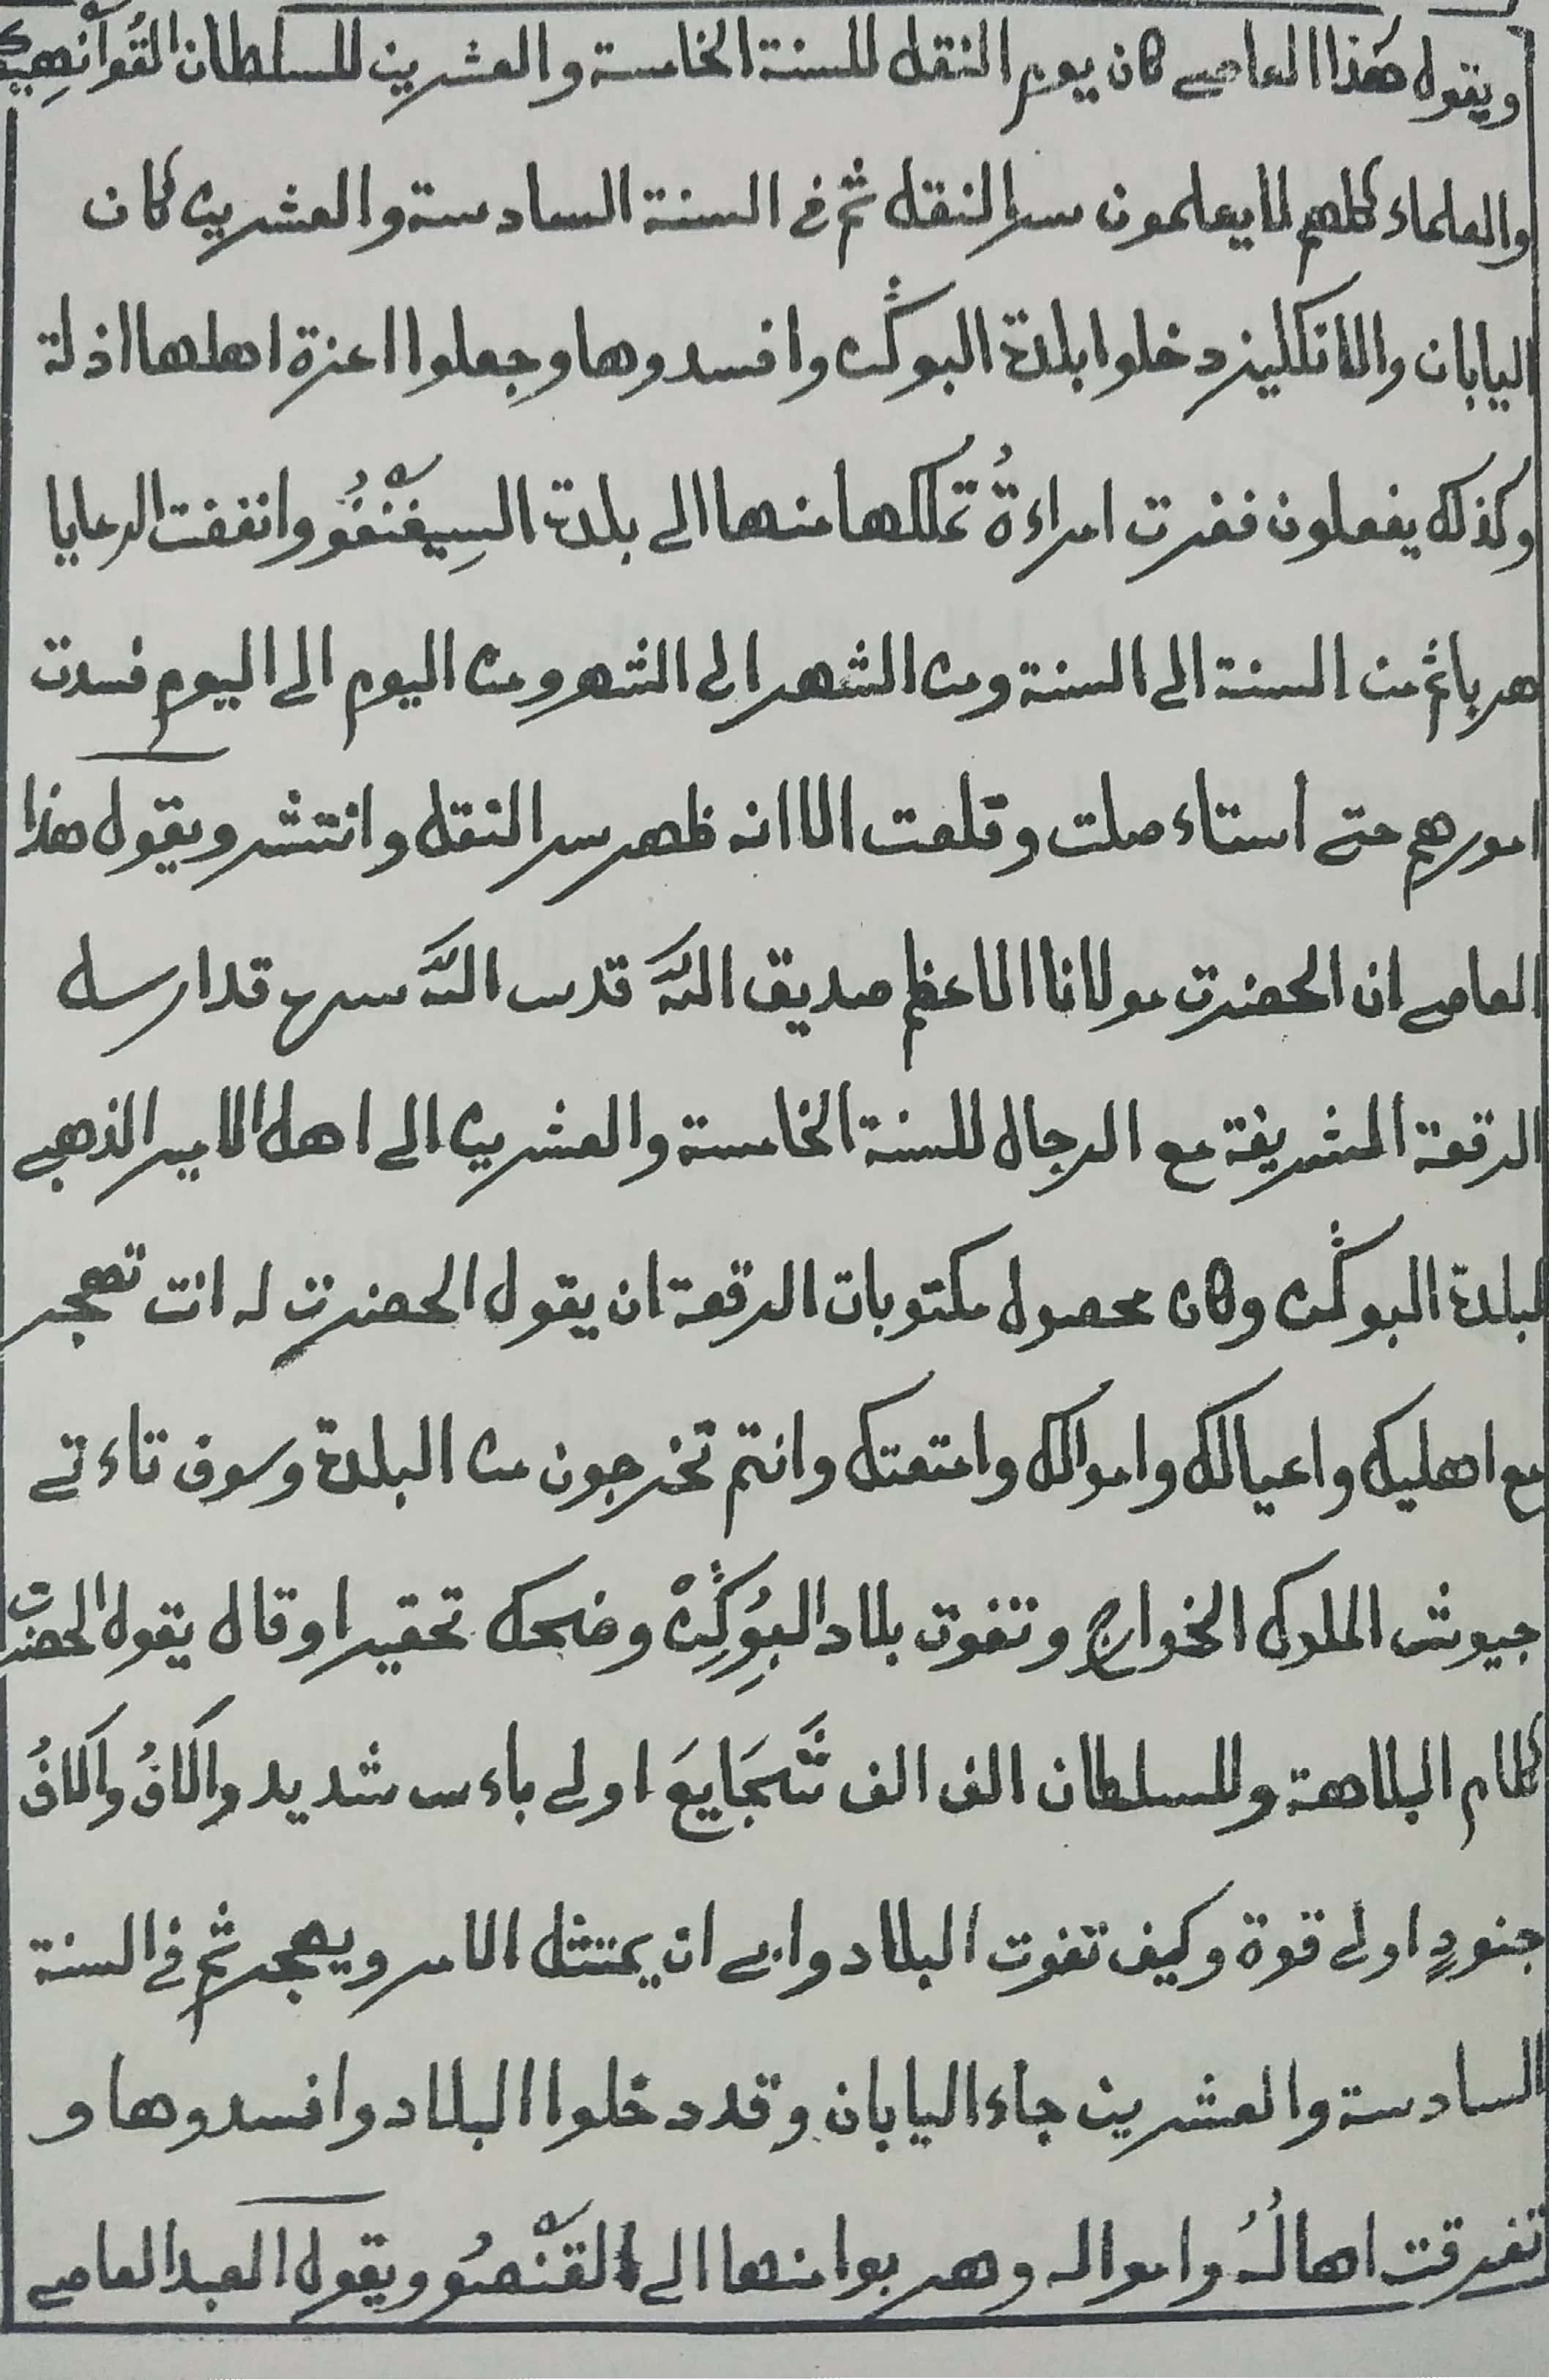 ويقول هذا العاصي كان يوم النقل للسنة الخامسة والعشرين للسلطان
والعلماء كلهم لا يعلمون سر النقل ثم في السنة السادسة والعشرين كان
اليابان والانكليز دخلوا بلدة البوڭن وافسدوها وجعلوا اعزة اهلها اذلة
وكذلك يفعلون ففرت امراءةُ تملكها منها الى بلدة السِيغْنْفُو وانففت الرعايا
هربا ثم من السنة الى السنة ومن الشهر الى الشهر ومن اليوم الى اليوم فسدت
امورهم حتى استاءصلت وقلعت الا انه ظهر سر النقل وانتشر ويقول هذا
العاصي ان الحضرت مولانا الاعظم صديق اللّٰه قدس اللّٰه سره قد ارسل
الرقعة الشريفة مع الرجال للسنة الخامسة والعشرين الى اهل الامير الذهبي
لبلدة البوڭن وكان محصول مكتوبات الرقعة ان يقول الحضرت له انت تهجر
مع اهليك واعيالك واموالك وامتعتك وانتم تخرجون من البلدة وسوف تاءتي
جيوش الملوك الخوارج وتفوت بلاد البُوِڭِنْ وضحك تحقيرا وقال يقول الحضرت
كلام البلاهة وللسلطان الف الف شَّجَايِعَ اولى باءس شديد والَافُ والَافُ
جنودٍ اولى قوة وكيف تفوت البلاد وابى ان يمتثل الامر ويهجر ثم في السنة
السادسة والعشرين جاء اليابان وقد دخلوا البلاد وافسدوها و
تفرقت اهالُه وامواله وهربوا منها الى القَنْصُو ويقول العبد العاصي